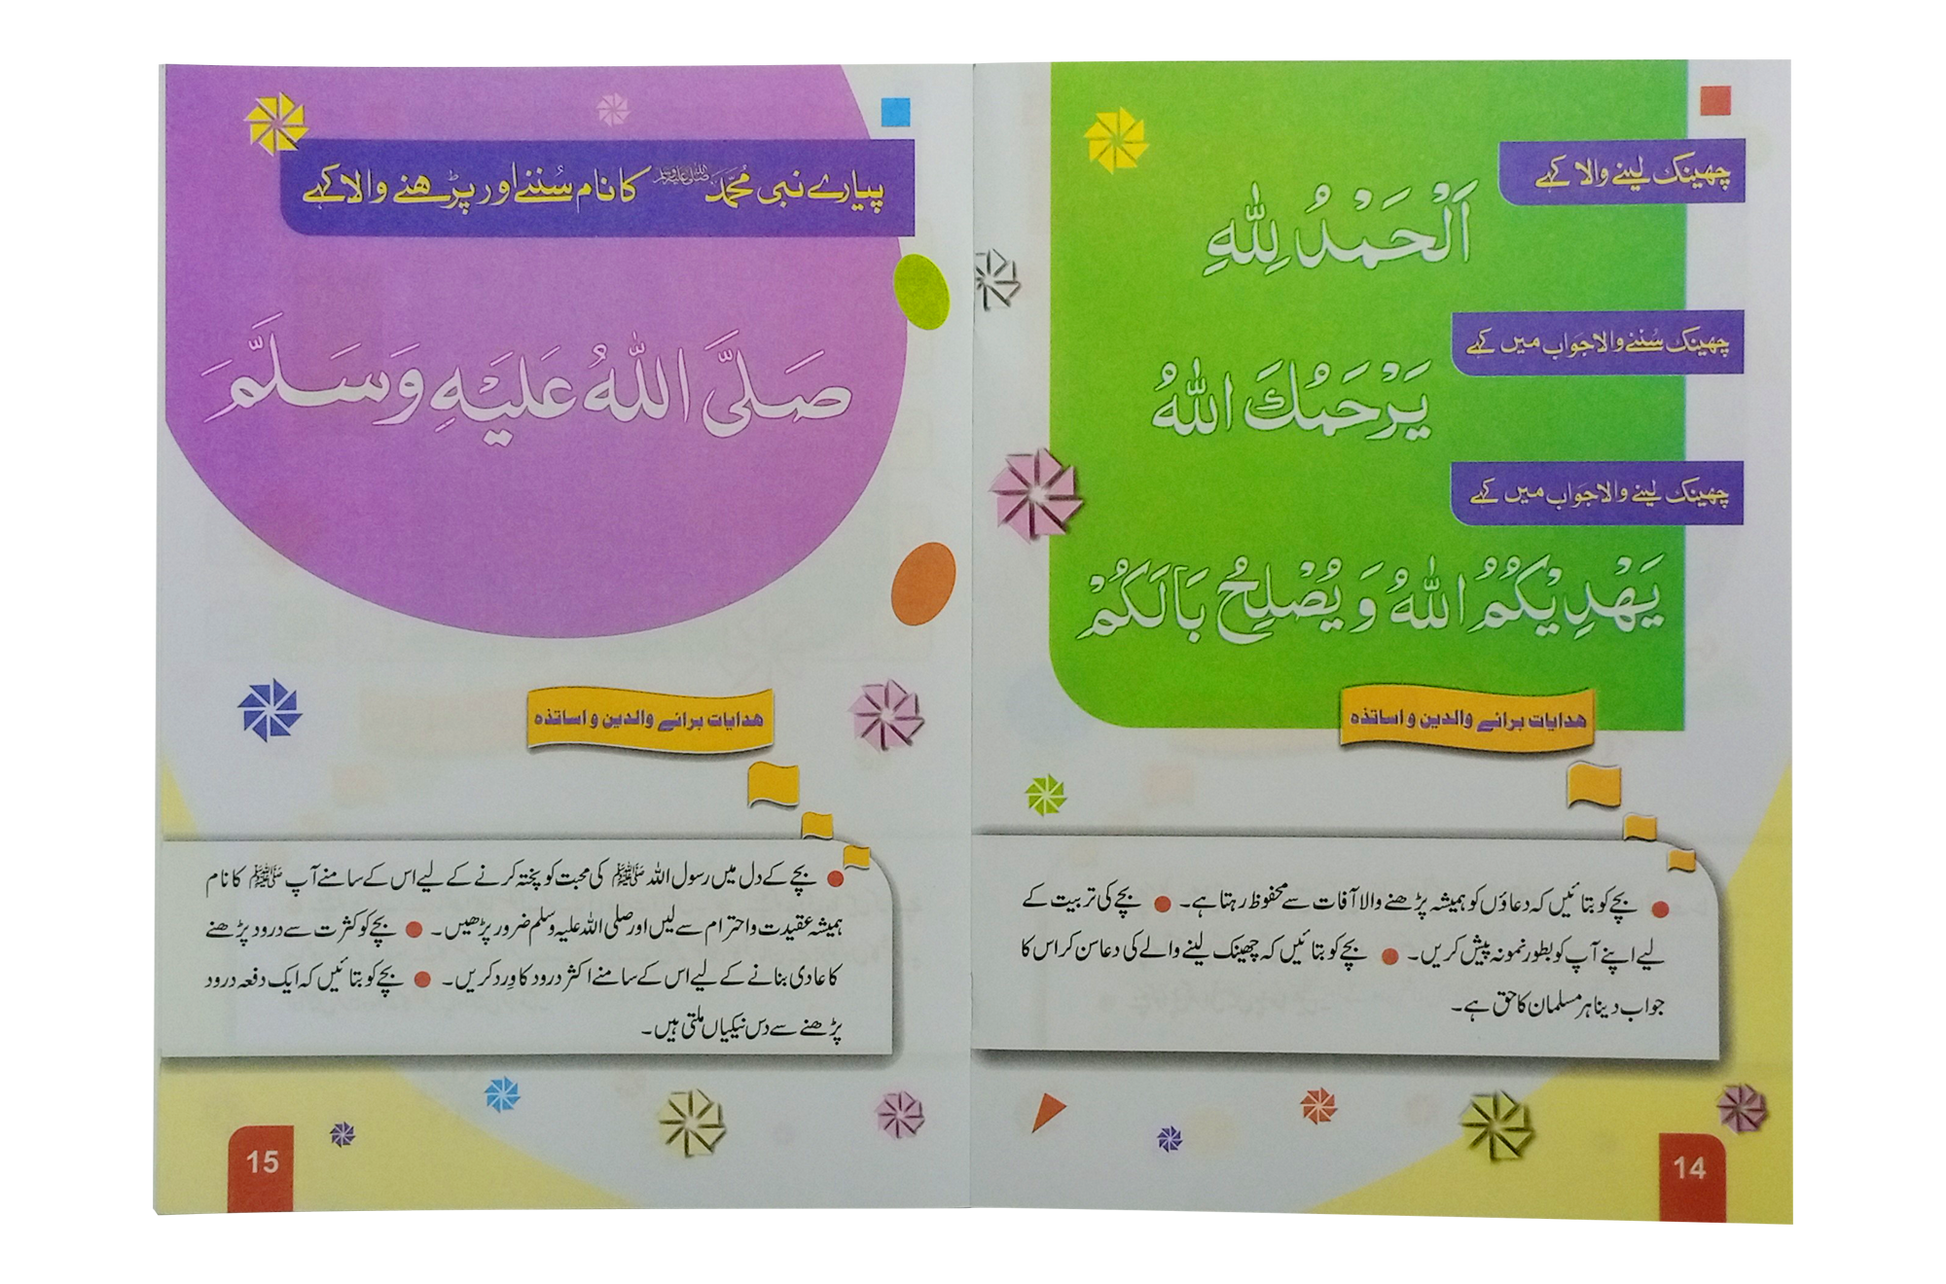 چھینک لینے والا کہے
اَلْحَمْدُ لِلّٰهِ
چھینک سُننے والا جواب میں کہے
یَرْحَمُكَ اللّٰهُ
چھینک لینے والا جواب میں کہے
یَهْدِیْكُمُ اللّٰهُ وَ یُصْلِحُ بَالَكُمْ
ھدایات برائے والدین و اساتذہ
● بچے کو بتائیں کہ دعاؤں کو ہمیشہ پڑھنے والا آفات سے محفوظ رہتا ہے۔ ● بچے کی تربیت کے
لیے اپنے آپ کو بطور نمونہ پیش کریں۔ ● بچے کو بتائیں کہ چھینک لینے والے کی دعا سن کر اس کا
جواب دینا ہر مسلمان کا حق ہے۔
14
پیارے نبی مُحَمَّد ﷺ کا نام سُننے اور پڑھنے والا کہے
صَلَّی اللّٰهُ عَلَیْهِ وَسَلَّمَ
ھدایات برائے والدین و اساتذہ
● بچے کے دل میں رسول اللہ ﷺ کی محبت کو پختہ کرنے کے لیے اس کے سامنے آپ ﷺ کا نام
ہمیشہ عقیدت و احترام سے لیں اور صلی اللہ علیہ وسلم ضرور پڑھیں۔ ● بچے کو کثرت سے درود پڑھنے
کا عادی بنانے کے لیے اس کے سامنے اکثر درود کا وِرد کریں۔ ● بچے کو بتائیں کہ ایک دفعہ درود
پڑھنے سے دس نیکیاں ملتی ہیں۔
15